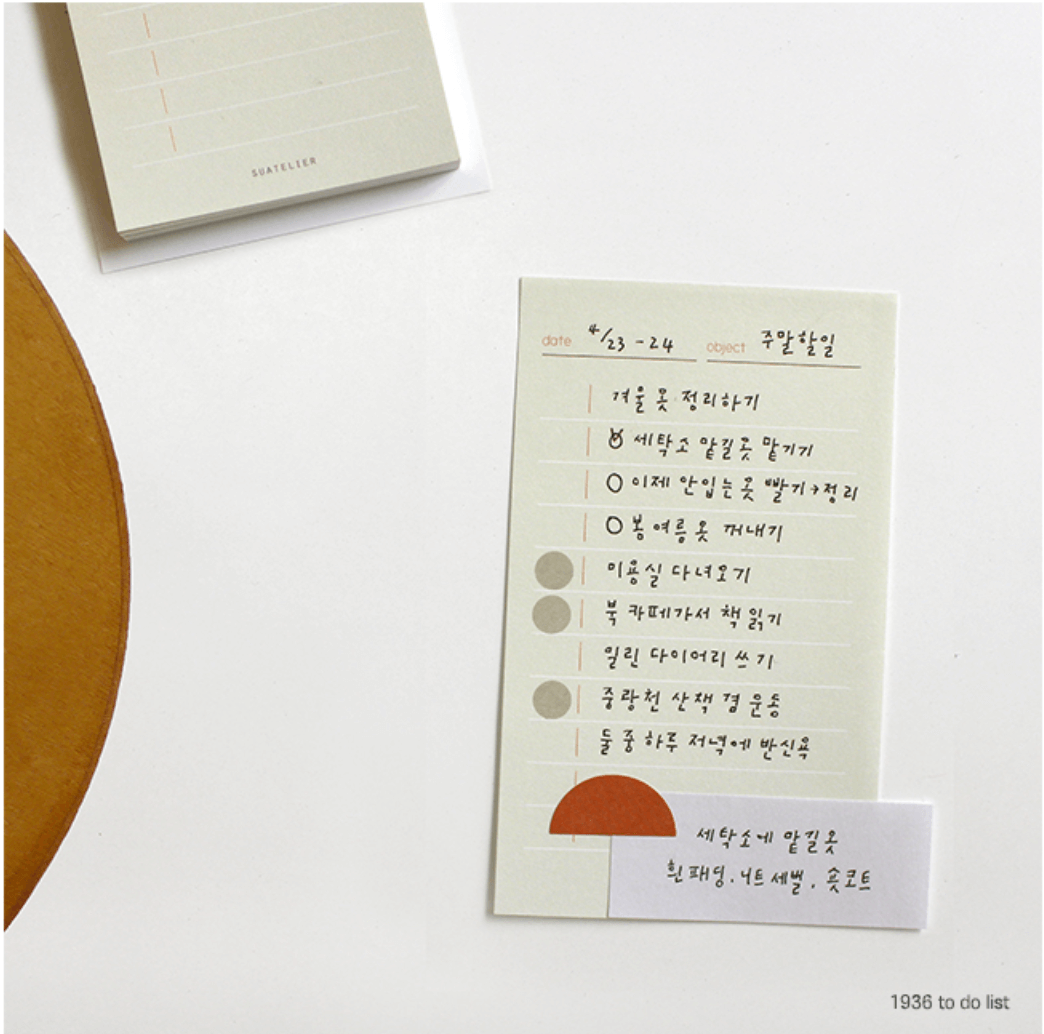 SUATELIER
date 4/23 - 24 object 주말할일
겨울 옷 정리하기
세탁소 맡길옷 맡기기
이제 안입는옷 빨기→정리
봄 여름 옷 꺼내기
미용실 다녀오기
북 카페가서 책 읽기
밀린 다이어리 쓰기
중랑천 산책 겸 운동
둘 중 하루 저녁에 반신욕
세탁소에 맡길옷
흰 패딩. 니트 세벌. 숏코트
1936 to do list